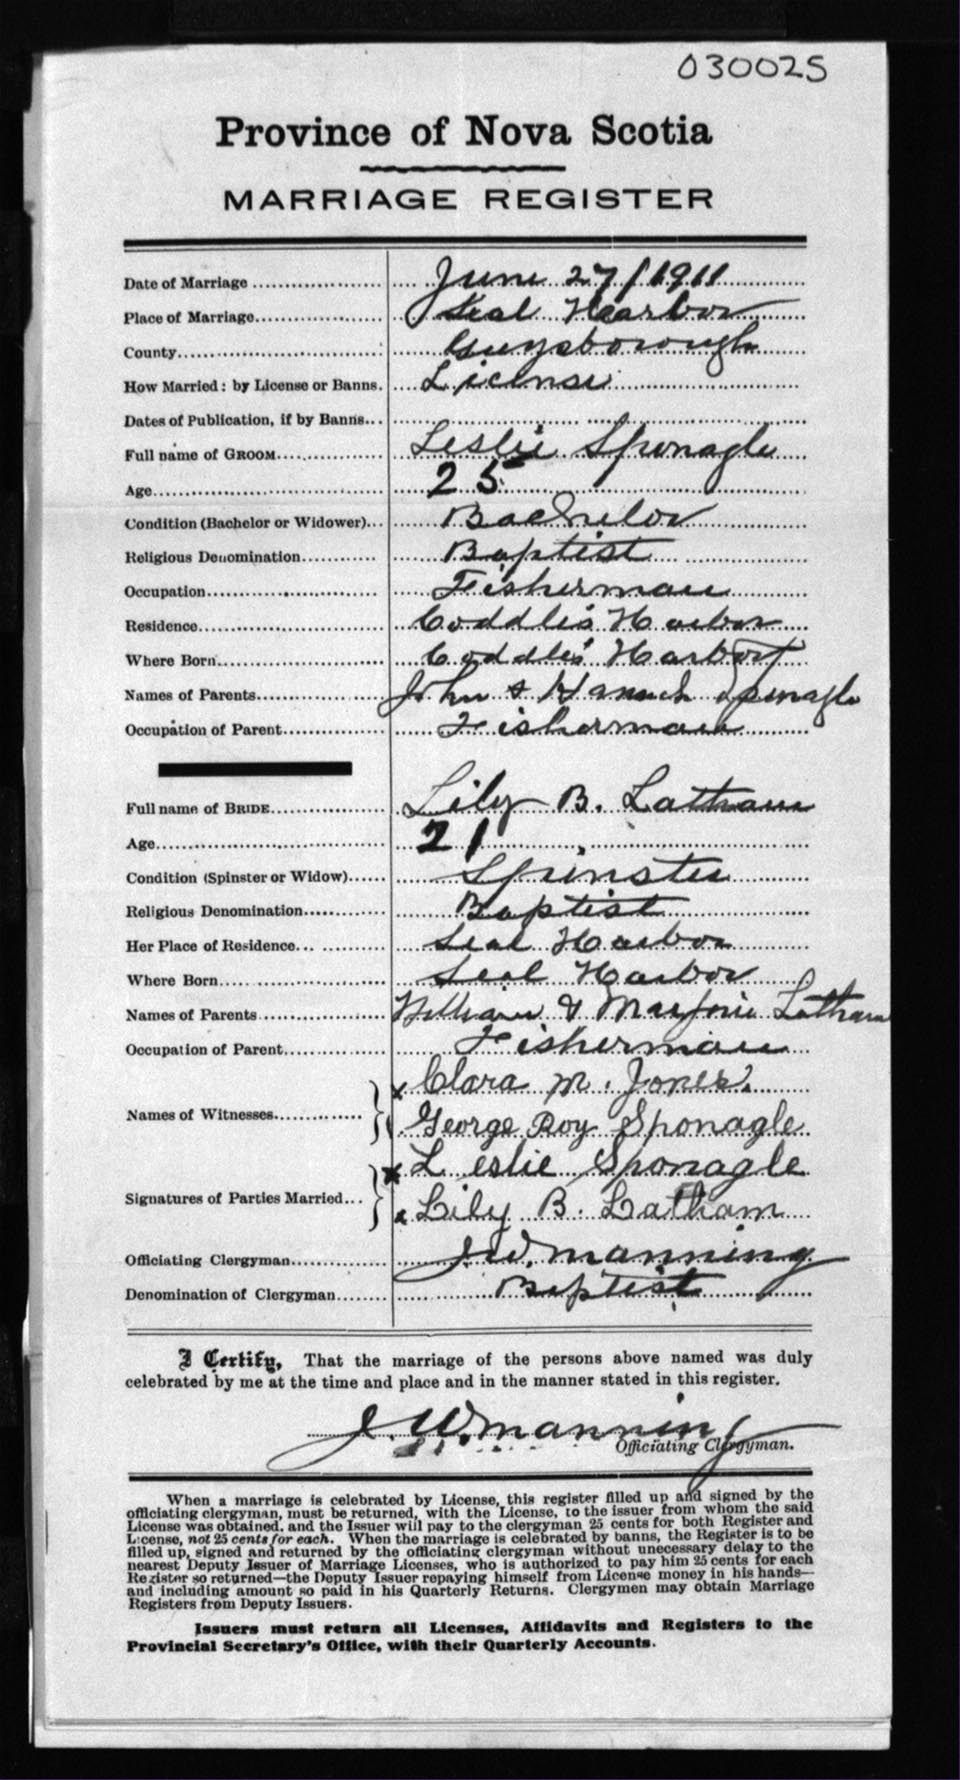 030025
Province of Nova Scotia
MARRIAGE REGISTER
Date of Marriage June 27/1911
Place of Marriage Seal Harbor
County Guysborough
How Married: by License or Banns. License
Dates of Publication, if by Banns
Full name of GROOM Leslie Sponagle
Age 25
Condition (Bachelor or Widower) Bachelor
Religious Denomination Baptist
Occupation Fisherman
Residence Coddle's Harbor
Where Born Coddle's Harbor
Names of Parents John & Hannah Sponagle
Occupation of Parent Fisherman
Full name of BRIDE Lily B. Latham
Age 21
Condition (Spinster or Widow) Spinster
Religious Denomination Baptist
Her Place of Residence Seal Harbor
Where Born Seal Harbor
Names of Parents William & Marjorie Latham
Occupation of Parent Fisherman
x Clara M. Jones.
Names of Witnesses
George Roy Sponagle
x Leslie Sponagle
Signatures of Parties Married
x Lily B. Latham
Officiating Clergyman J. W. Manning
Denomination of Clergyman Baptist
I Certify, That the marriage of the persons above named was duly
celebrated by me at the time and place and in the manner stated in this register.
J. W. Manning
Officiating Clergyman.
When a marriage is celebrated by License, this register filled up and signed by the
officiating clergyman, must be returned, with the License, to the issuer from whom the said
License was obtained, and the Issuer will pay to the clergyman 25 cents for both Register and
License, not 25 cents for each. When the marriage is celebrated by banns, the Register is to be
filled up, signed and returned by the officiating clergyman without unnecessary delay to the
nearest Deputy Issuer of Marriage Licenses, who is authorized to pay him 25 cents for each
Register so returned—the Deputy Issuer repaying himself from License money in his hands—
and including amount so paid in his Quarterly Returns. Clergymen may obtain Marriage
Registers from Deputy Issuers.
Issuers must return all Licenses, Affidavits and Registers to the
Provincial Secretary's Office, with their Quarterly Accounts.